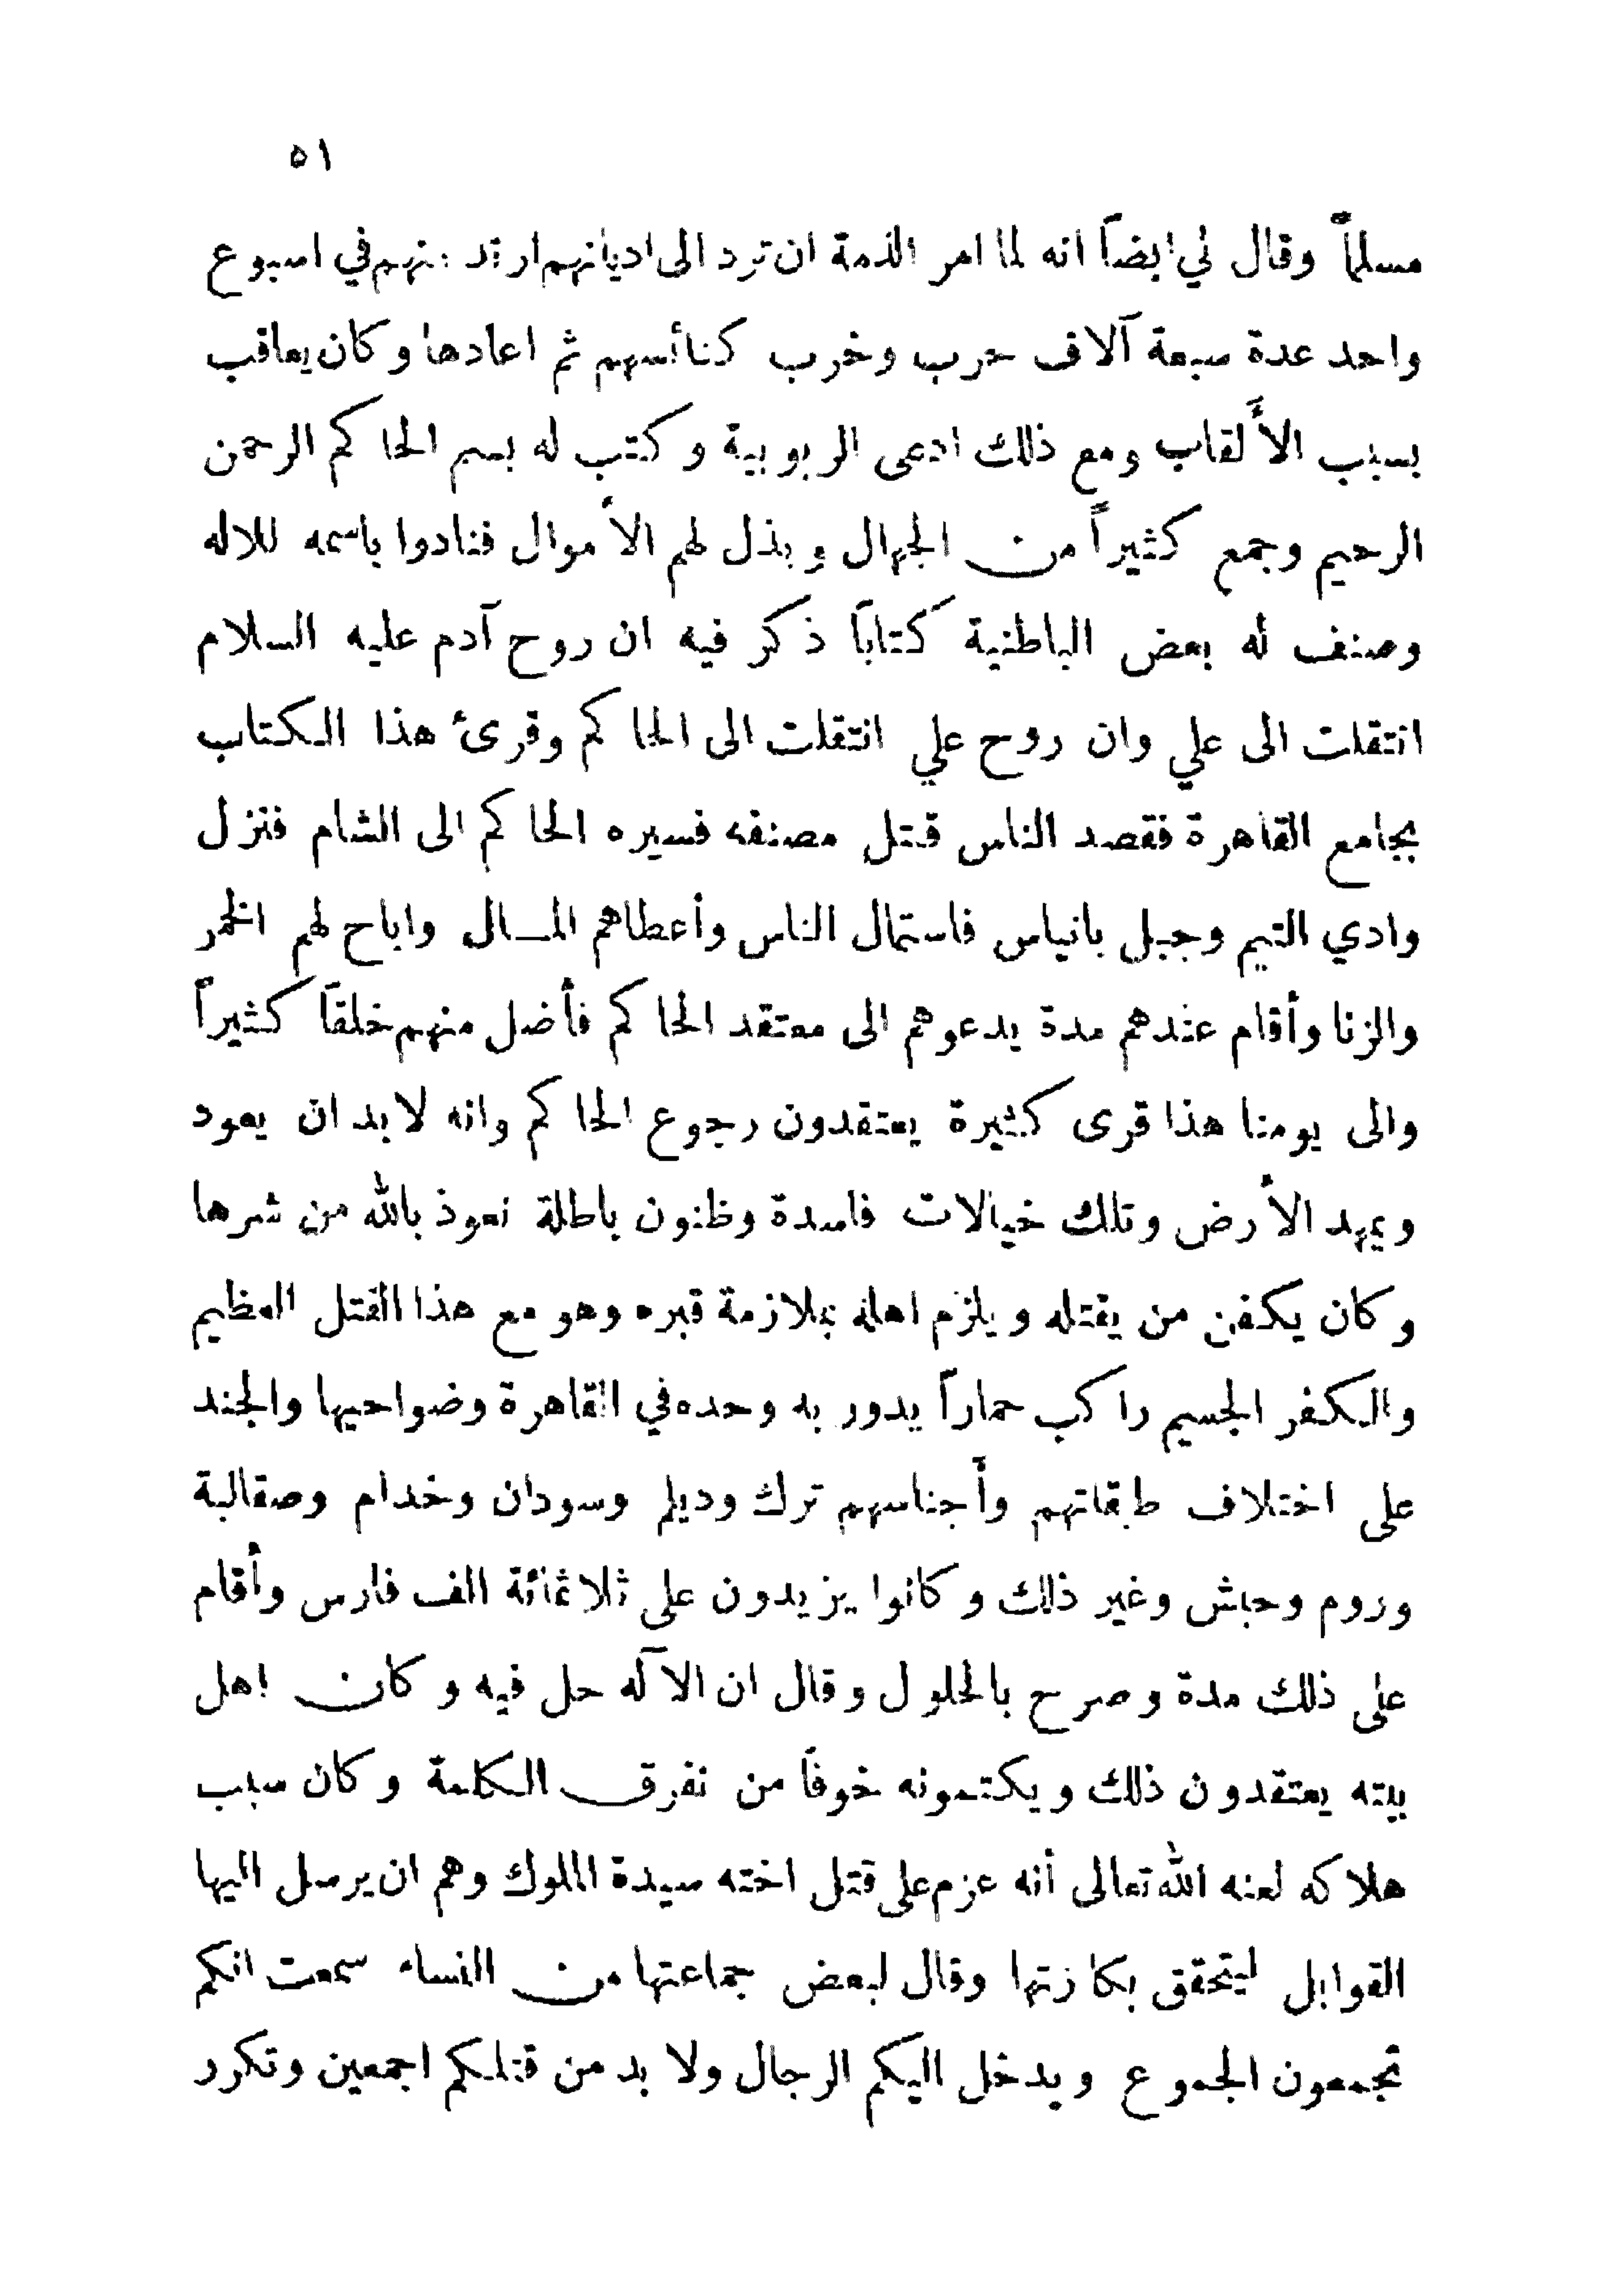 ٥١
مسلماً وقال لي ايضاً انه لما امر الذمة ان ترد الى اديانهم ارتد منهم في اسبوع
واحد عدة سبعة آلاف حرب وخرب كنائسهم ثم اعادها وكان يعاقب
بسبب الألقاب ومع ذلك ادعى الربوبية وكتب له بسم الحاكم الرحمن
الرحيم وجمع كثيراً من الجهال وبذل لهم الأموال فنادوا باسمه للاله
وصنف له بعض الباطنية كتاباً ذكر فيه ان روح آدم عليه السلام
انتقلت الى علي وان روح علي انتقلت الى الحاكم وقرئ هذا الكتاب
بجامع القاهرة فقصد الناس قتل مصنفه فسيره الحاكم الى الشام فنزل
وادي التيم وجبل بانياس فاستمال الناس وأعطاهم المال واباح لهم الخمر
والزنا وأقام عندهم مدة يدعوهم الى معتقد الحاكم فأضل منهم خلقاً كثيراً
والى يومنا هذا قرى كثيرة يعتقدون رجوع الحاكم وانه لا بد ان يعود
ويمهد الأرض وتلك خيالات فاسدة وظنون باطلة نعوذ بالله من شرها
وكان يكفن من يقتله ويلزم اهله بملازمة قبره وهو مع هذا القتل العظيم
والكفر الجسيم راكب حماراً يدور به وحده في القاهرة وضواحيها والجند
على اختلاف طبقاتهم وأجناسهم ترك وديلم وسودان وخدام وصقالبة
وروم وحبش وغير ذلك وكانوا يزيدون على ثلاثمائة الف فارس وأقام
على ذلك مدة وصرح بالحلول وقال ان الآله حل فيه وكان اهل
بيته يعتقدون ذلك ويكتمونه خوفاً من تفرق الكلمة وكان سبب
هلاكه لعنه الله تعالى أنه عزم على قتل اخته سيدة الملوك وهم ان يرسل اليها
القوابل ليتحقق بكارتها وقال لبعض جماعتها من النساء سمعت انكم
تجمعون الجموع ويدخل اليكم الرجال ولا بد من قتلكم اجمعين وتكرر